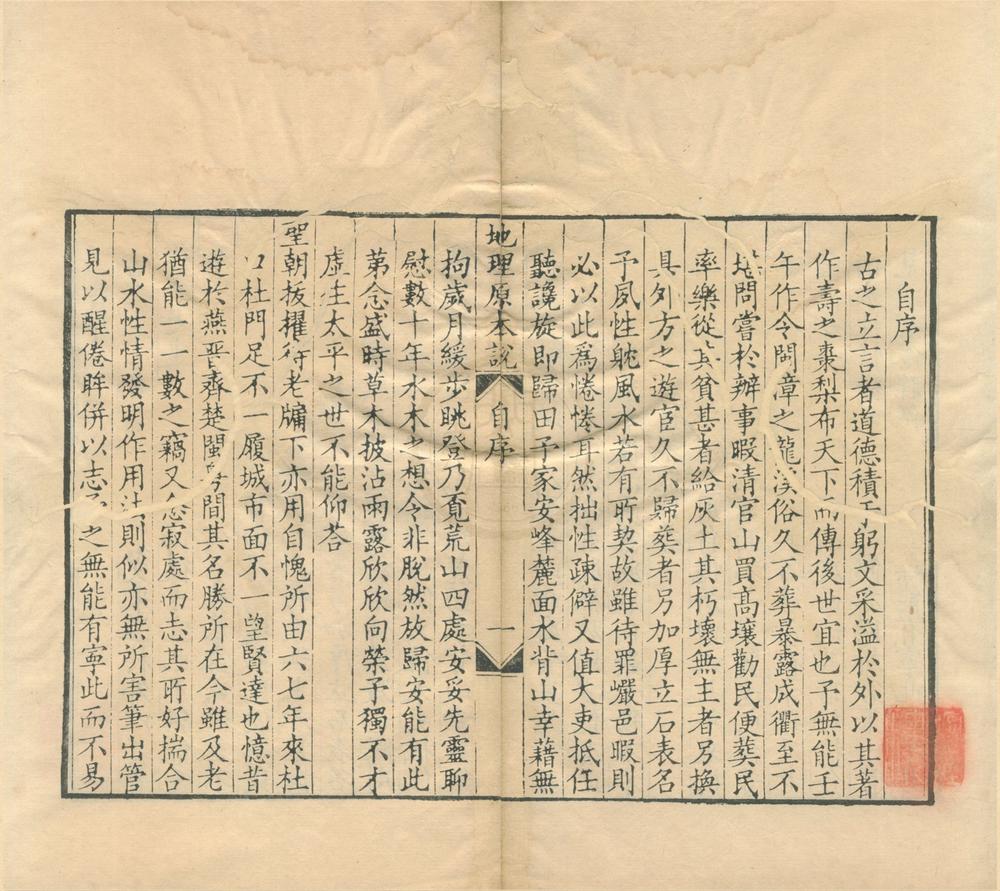 自序
古之立言者道德積于躬文采溢於外以其著
作壽之棗梨布天下而傳後世宜也予無能壬
午作令閩漳之龍溪俗久不葬暴露成衢至不
堪問嘗於辦事暇清官山買高壤勸民便葬民
率樂從其貧甚者給灰土其朽壞無主者另換
具外方之遊宦久不歸葬者另加厚立石表名
予夙性躭風水若有所契故雖待罪巖邑暇則
必以此爲惓惓耳然拙性疎僻又值大吏抵任
聽讒旋即歸田予家安峰麓面水背山幸藉無
地理原本說 自序 一
拘歲月緩步眺登乃覔荒山四處安妥先靈聊
慰數十年水木之想令非脫然放歸安能有此
第念盛時草木披沾雨露欣欣向榮予獨不才
虛生太平之世不能仰荅
聖朝拔擢徒老牖下亦用自愧所由六七年來杜
杜門足不一履城市面不一望賢達也憶昔
遊於燕晉齊楚閩粵間其名勝所在今雖及老
猶能一一數之竊又念寂處而志其所好揣合
山水性情發明作用法則似亦無所害筆出管
見以醒倦眸併以志予之無能有寧此而不易